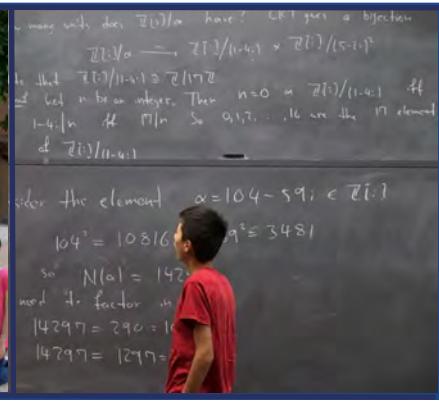 many units does ℤ[i]/α have? CRT gives a bijection
ℤ[i]/α → ℤ[i]/(1-4i) × ℤ[i]/(5-2i)²
that ℤ[i]/(1-4i) ≅ ℤ/17ℤ
Let n be an integer. Then n=0 in ℤ[i]/(1-4i) iff
1-4i|n iff 17|n So 0,1,2,...,16 are the 17 element
of ℤ[i]/(1-4i)
sider the element α=104-59i ∈ ℤ[i]
104² = 10816 9²=3481
so N(α) = 142
need to factor in
14297 = 290 = 1
14297 = 1297=